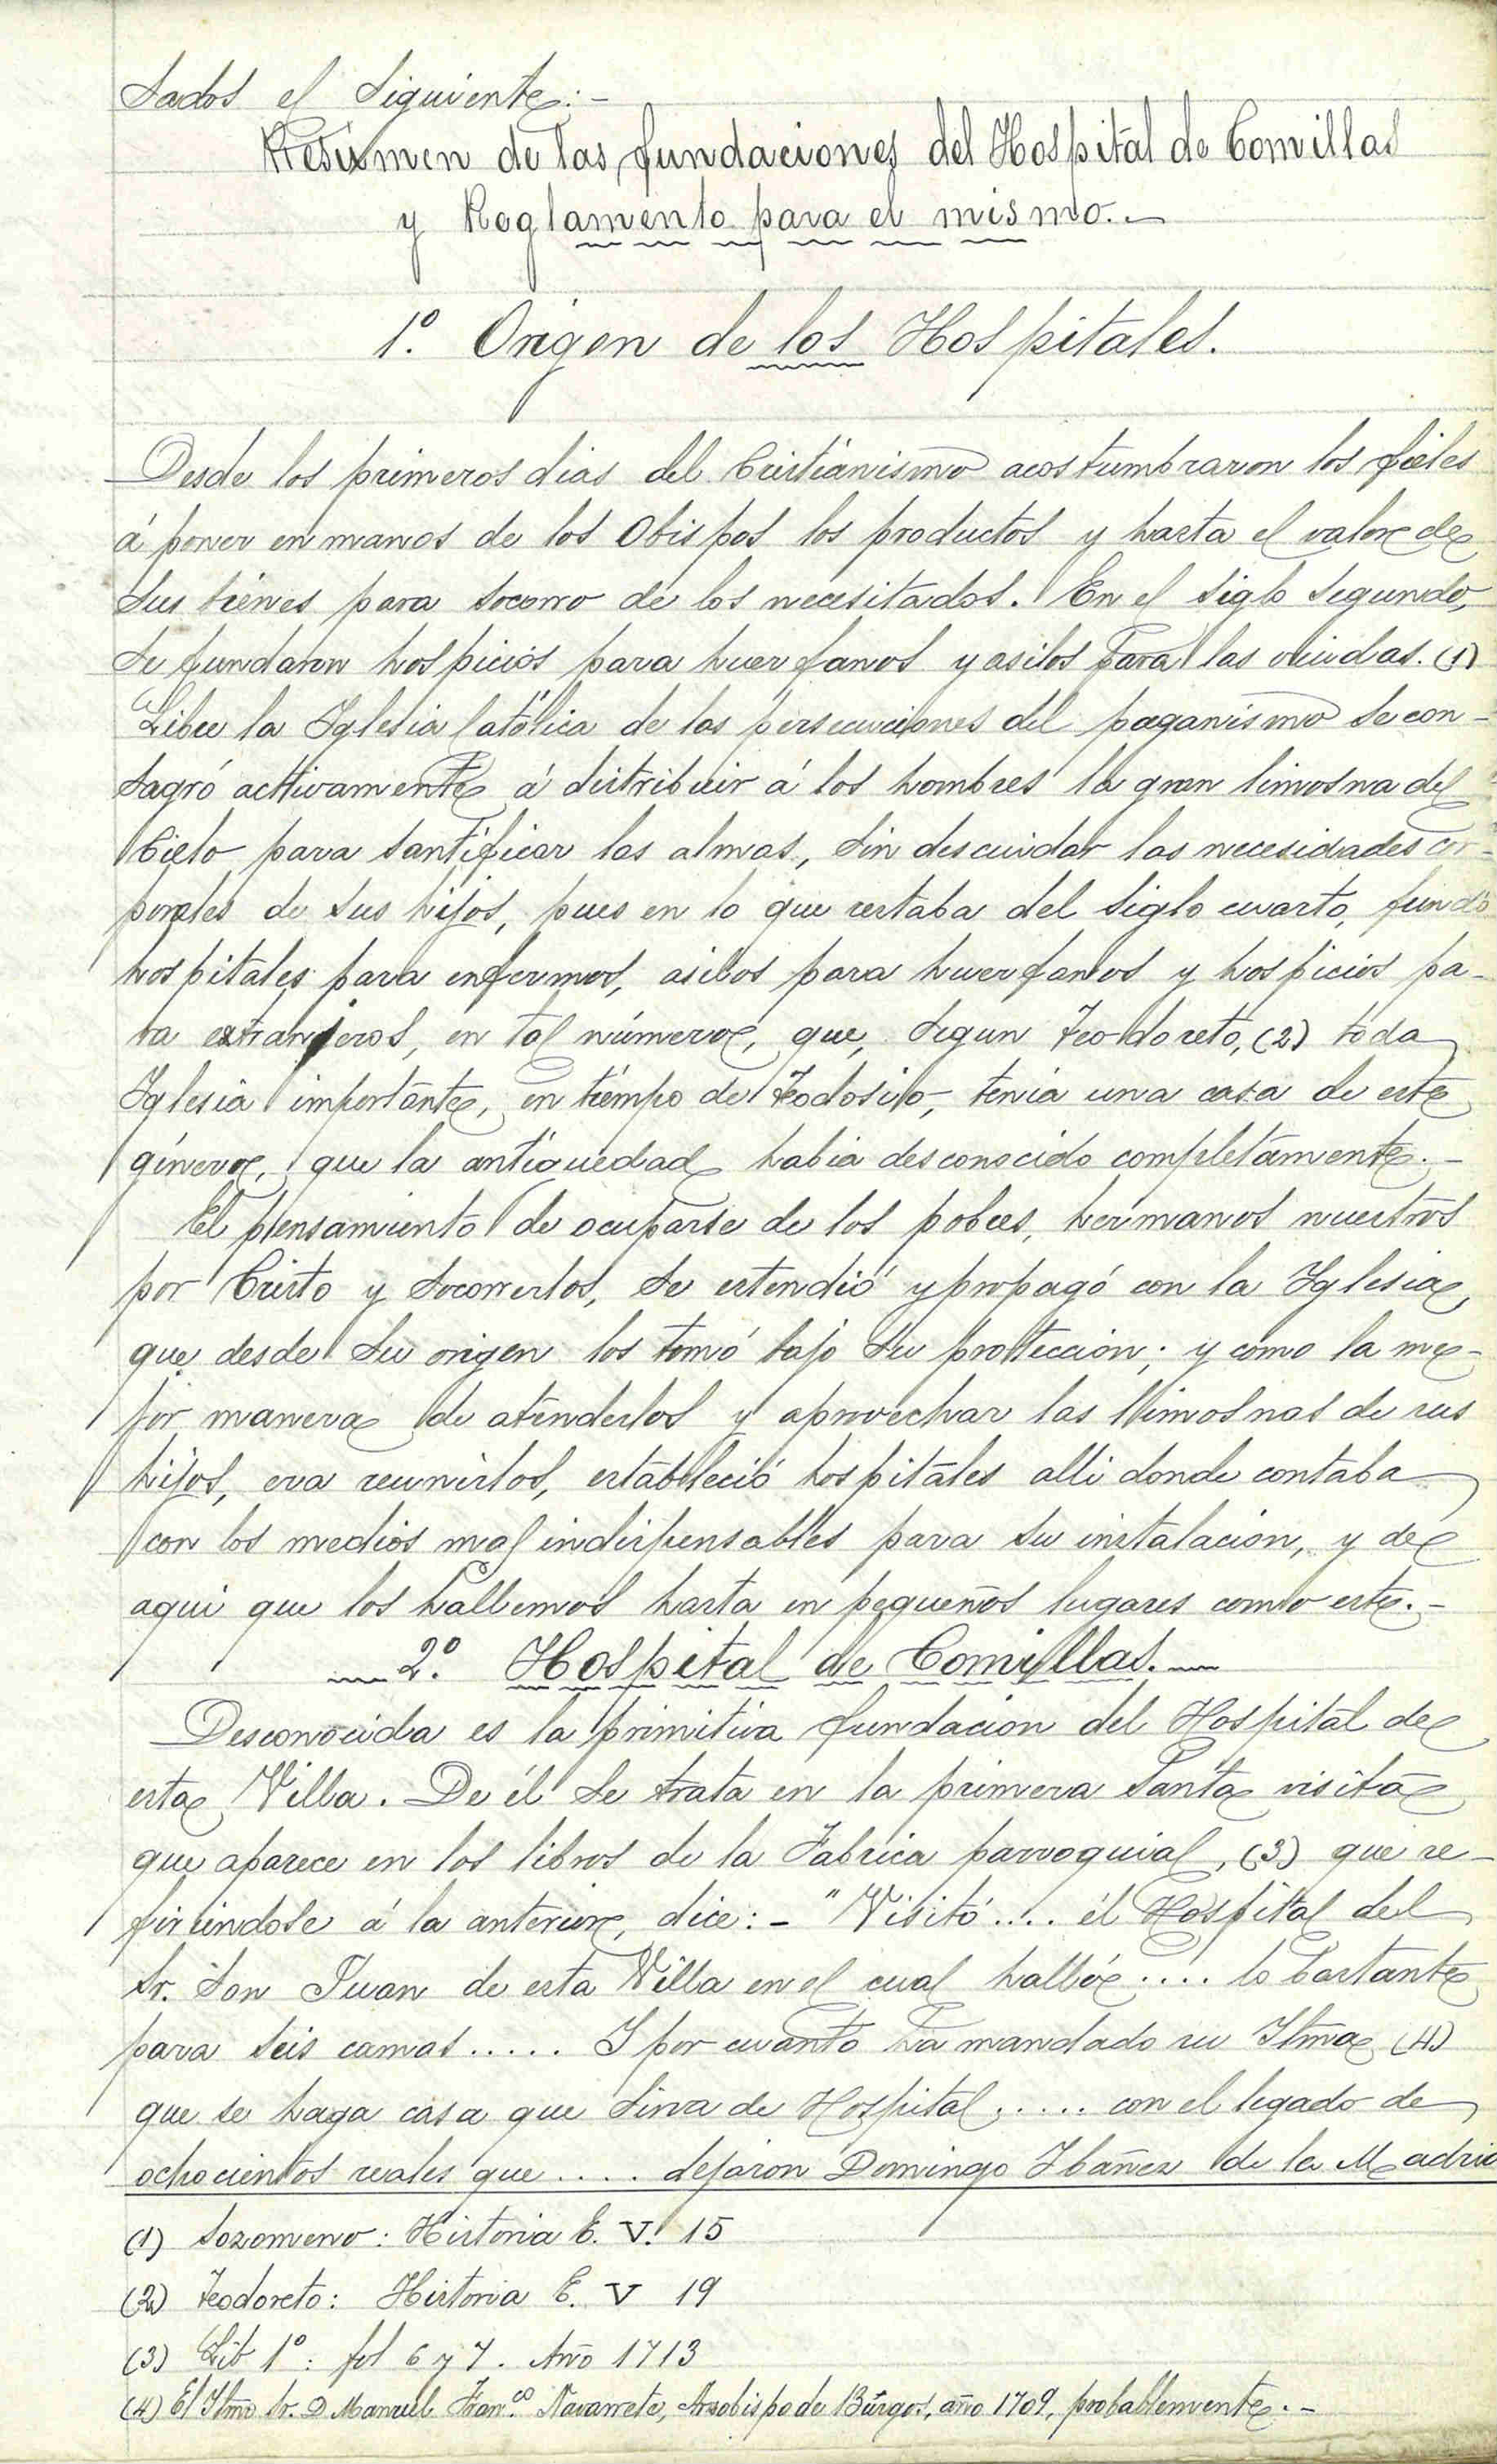 sados el siguiente:-
Resumen de las fundaciones del Hospital de Comillas
y Reglamento para el mismo.-
1º. Origen de los Hospitales.
Desde los primeros dias del Cristianismo acostumbraron los fieles
á poner en manos de los Obispos los productos y hasta el valor de
sus bienes para socorro de los necesitados. En el siglo segundo,
se fundaron hospicios para huerfanos y asilos para las viudas. (1)
Libre la Iglesia Católica de las persecuciones del paganismo se con-
sagró activamente á distribuir á los hombres la gran limosna del
Cielo para santificar las almas, sin descuidar las necesidades cor-
porales de sus hijos, pues en lo que restaba del siglo cuarto, fundó
hospitales para enfermos, asilos para huerfanos y hospicios pa-
ra extranjeros, en tal número, que, segun Teodoreto, (2) toda
Iglesia importante, en tiempo de Teodosio, tenia una casa de este
género, que la antigüedad habia desconocido completamente.-
El pensamiento de ocuparse de los pobres, hermanos nuestros
por Cristo y socorrerlos, se estendió y propagó con la Iglesia,
que desde su origen los tomó bajo su proteccion; y como la me-
jor manera de atenderlos y aprovechar las limosnas de sus
hijos, era reunirlos, estableció hospitales alli donde contaba
con los medios mas indispensables para su instalacion, y de
aqui que los hallemos hasta en pequeños lugares como este.-
2º. Hospital de Comillas.
Desconocida es la primitiva fundacion del Hospital de
esta Villa. De él se trata en la primera Santa visita
que aparece en los libros de la Fabrica parroquial, (3) que re-
firiéndose á la anterior, dice:- "Visitó.... él Hospital del
Sr. Son Juan de esta Villa en el cual halló.... lo bastante
para seis camas..... Y por cuanto ha mandado su Iltma (4)
que se haga casa que sirva de Hospital..... con el legado de
ochocientos reales que.... dejaron Domingo Ibañez de la Madrid
(1) Sozomeno: Historia E. V. 15
(2) Teodoreto: Historia E. V 19
(3) Lib 1º: fol 6 y 7. Año 1713
(4) El Iltmo Sr. D Manuel Fran.co Navarrete, Arzobispo de Búrgos, año 1709, probablemente.-